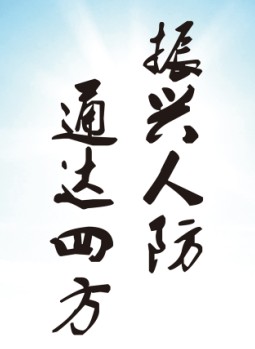 振兴人防
通达四方